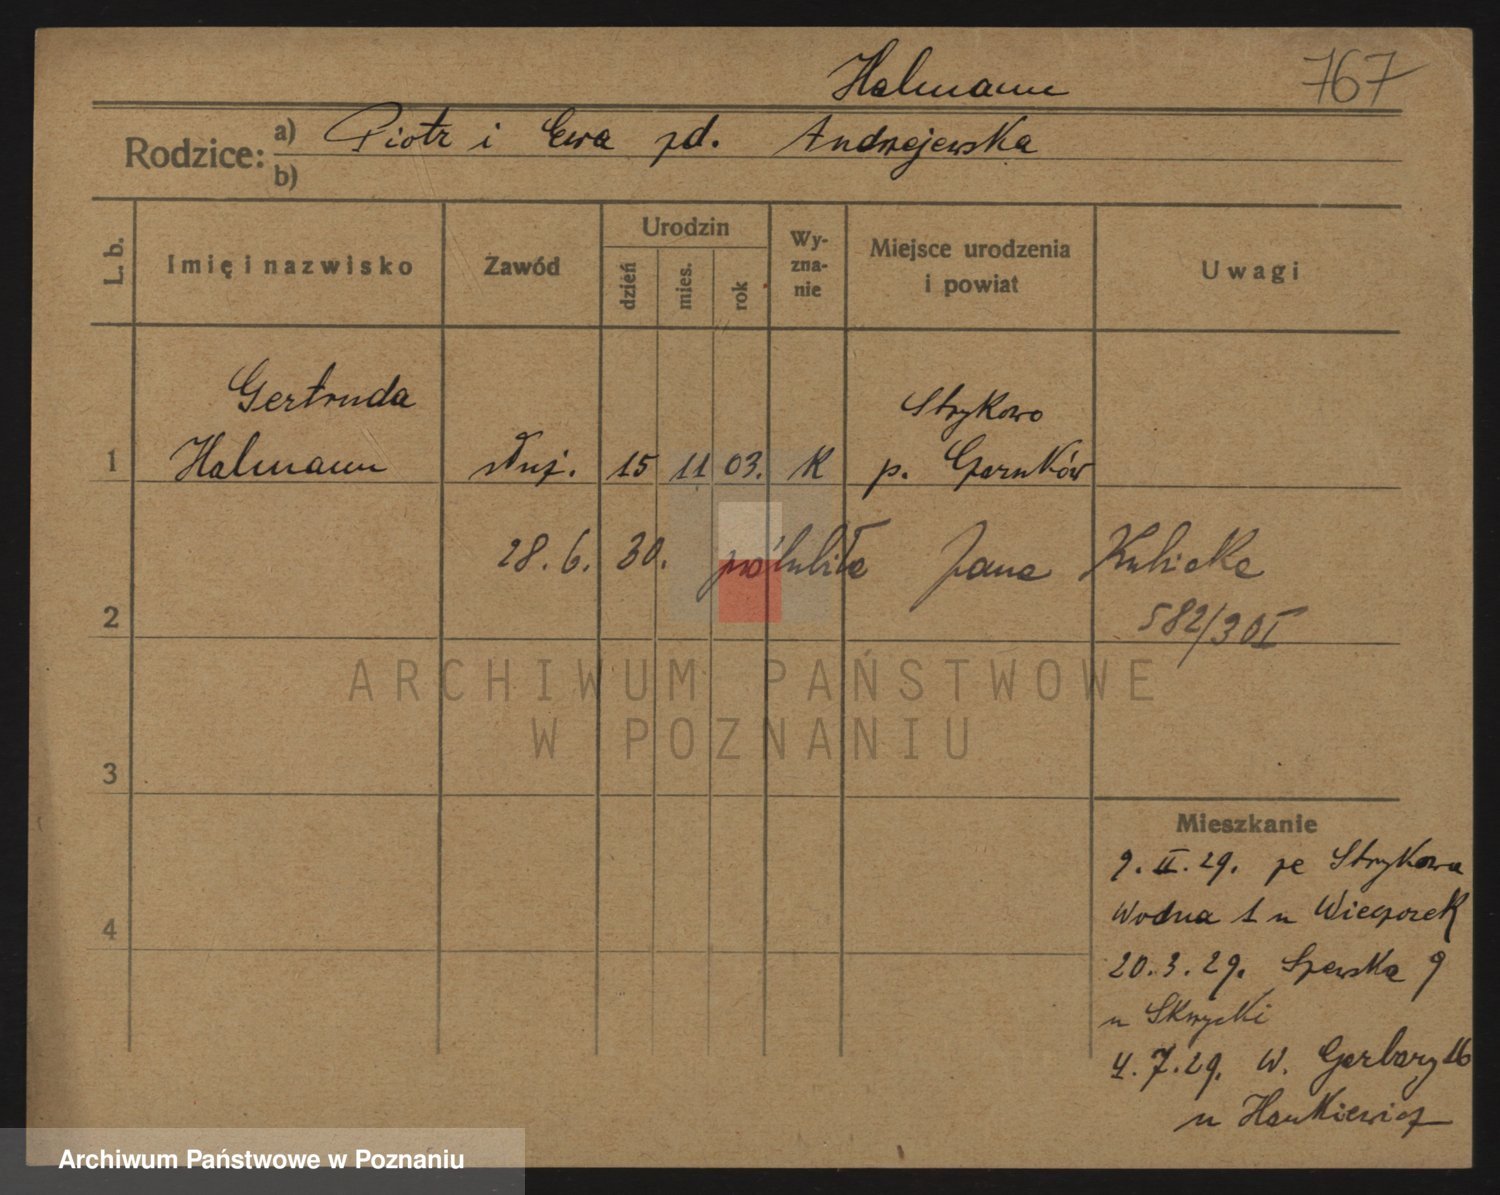 Halmann
767
Rodzice: a) Piotr i Ewa zd. Andrzejewska
b)
L. b.
Imię i nazwisko
Zawód
Urodzin
dzień
mies.
rok
Wy-
zna-
nie
Miejsce urodzenia
i powiat
Uwagi
Gertruda
Strykowo
1 Halmann służ. 15 11 03. K p. Czarnków
28. 6. 30. poślubiła Jana Kubicka
2
582/30I
ARCHIWUM PAŃSTWOWE
W POZNANIU
3
Mieszkanie
9. II. 29. ze Strykowa
4
Wodna 1 u Wieczorek
20. 3. 29. Szewska 9
u
4. 7. 29. W. Garbary 16
u Hankiewicz
Archiwum Państwowe w Poznaniu